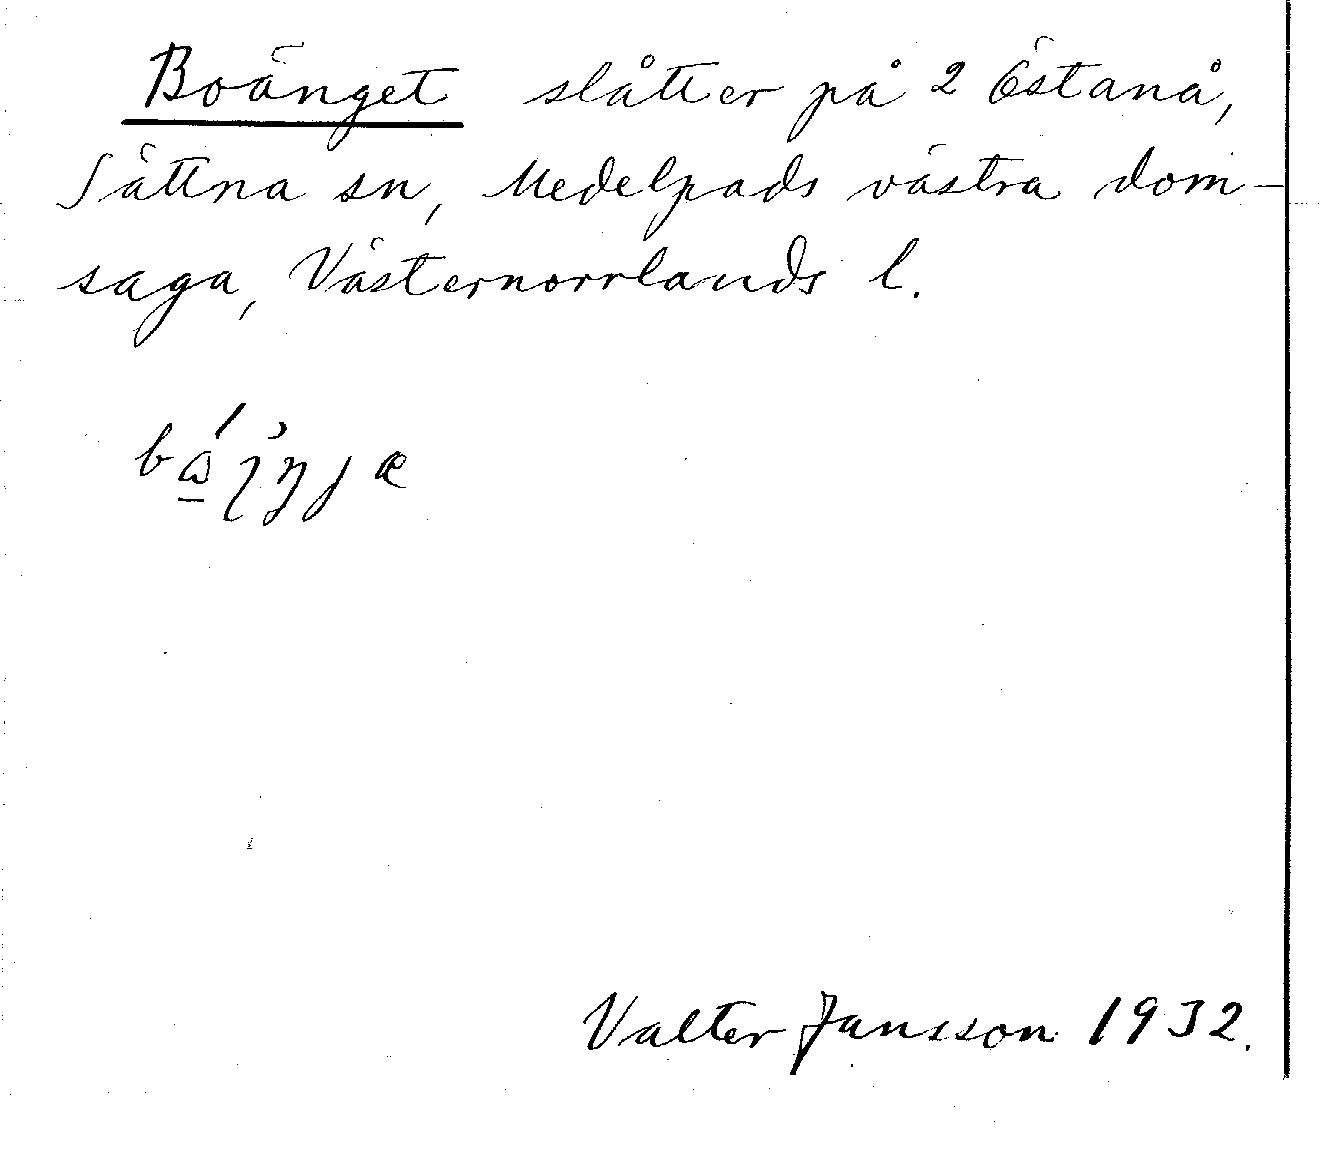 Boänget slåtter på 2 Östanå,
Sättna sn, Medelpads västra dom-
saga, Västernorrlands l.
Valter Jansson 1932.